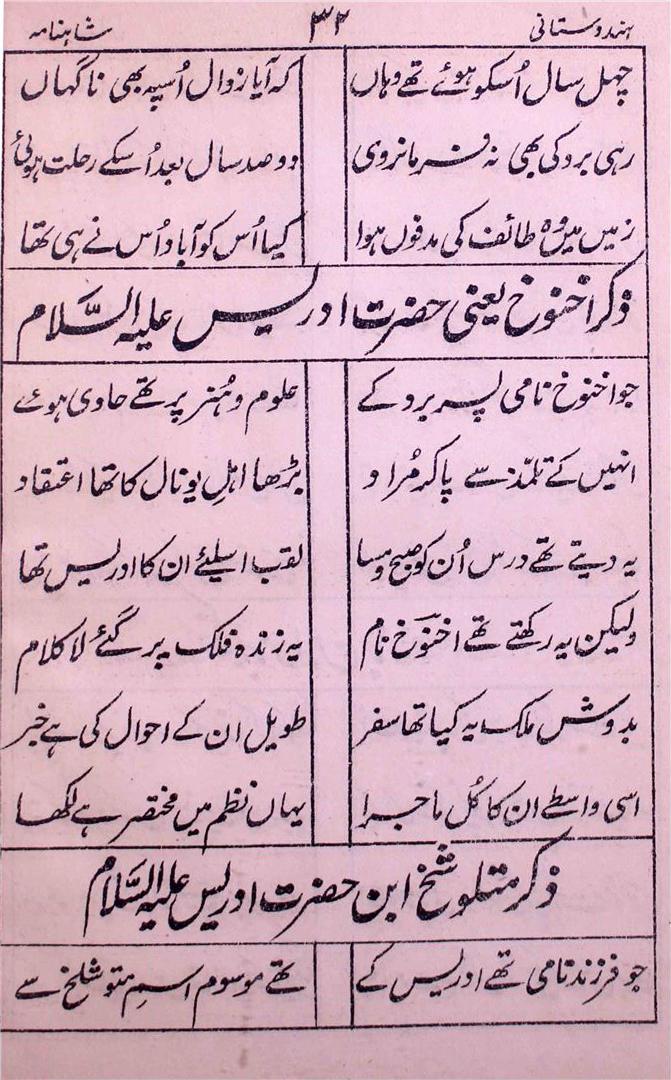 ہندوستانی ۳۲ شاہنامہ
چہل سال اُسکو ہوئے تھے وہاں کہ آیا زوال اُسپہ بھی ناگہاں
رہی برد کی بھی نہ فرمانروی دو صد سال بعد اُسکے رحلت ہوئی
زمیں میں وُہ طائف کی مدفوں ہوا کیا اُس کو آباد اُس نے ہی تھا
ذکر اخنوخ یعنی حضرت ادریس علیہ السَّلام
جو اخنوخ نامی پسر برد کے علوم و ہُنر پر تھے حاوی ہوئے
انہیں کے تلمّذ سے پا کر مُراد بڑھا اہلِ یونال کا تھا اعتقاد
یہ دیتے تھے درس اُن کو صبح و مسا لقب اسلئے ان کا ادریس تھا
ولیکن یہ رکھتے تھے اخنوخ نام یہ زندہ فلک پر گئے لا کلام
بدوش ملک یہ کیا تھا سفر طویل ان کے احوال کی ہے خبر
اسی واسطے ان کا کُل ماجرا یہاں نظم میں مختصر ہے لکھا
ذکر متلوشخ ابن حضرت ادریس علیہ السَّلام
جو فرزند نامی تھے ادریس کے تھے موسوم اسمِ متوشلخ سے